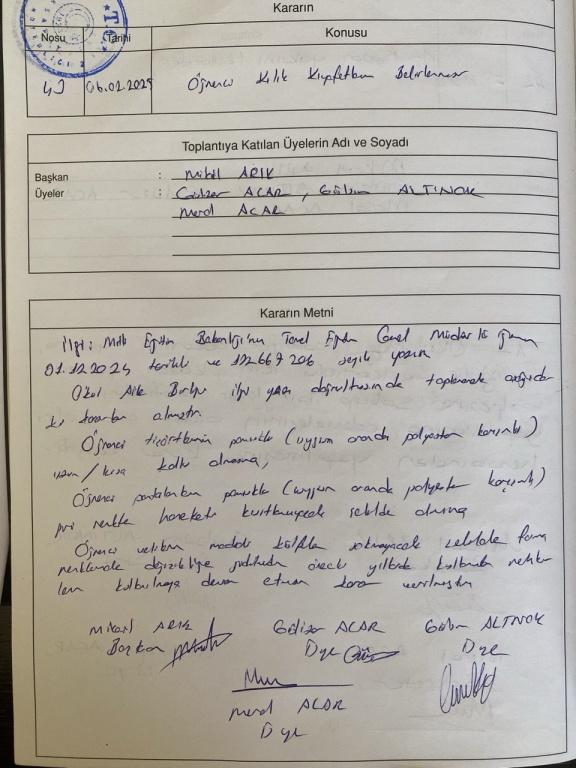 Kararın
Nosu Tarihi Konusu
43 06.02.2025 Öğrenci Kılık Kıyafetlerin Belirlenmesi
Toplantıya Katılan Üyelerin Adı ve Soyadı
Başkan : Mikail ARIK
Üyeler : Gülizar ACAR, Gülsün ALTINOK
Meral ACAR
Kararın Metni
İlgi: Milli Eğitim Bakanlığı'nın Temel Eğitim Genel Müdürlüğünün
01.12.2024 tarihli ve 122667206 sayılı yazısı
Okul Aile Birliği ilgi yazı doğrultusunda toplanarak aşağıdaki
ki kararları almıştır.
Öğrenci tişörtlerinin pamuklu (uygun oranda polyester karışımlı)
uzun/kısa kollu olmasına,
Öğrenci pantolonların pamuklu (uygun oranda polyester karışımlı)
gri renkte hareketi kısıtlamayacak şekilde olmasına
Öğrenci velilerini maddi külfete sokmayacak şekilde forma
renklerinde değişikliğe gidilmeden önceki yıllarda kullanılan renkler
kullanılmaya devam etmesine karar verilmiştir.
Mikail ARIK Gülizar ACAR Gülsün ALTINOK
Başkan Üye Üye
Meral ACAR
Üye